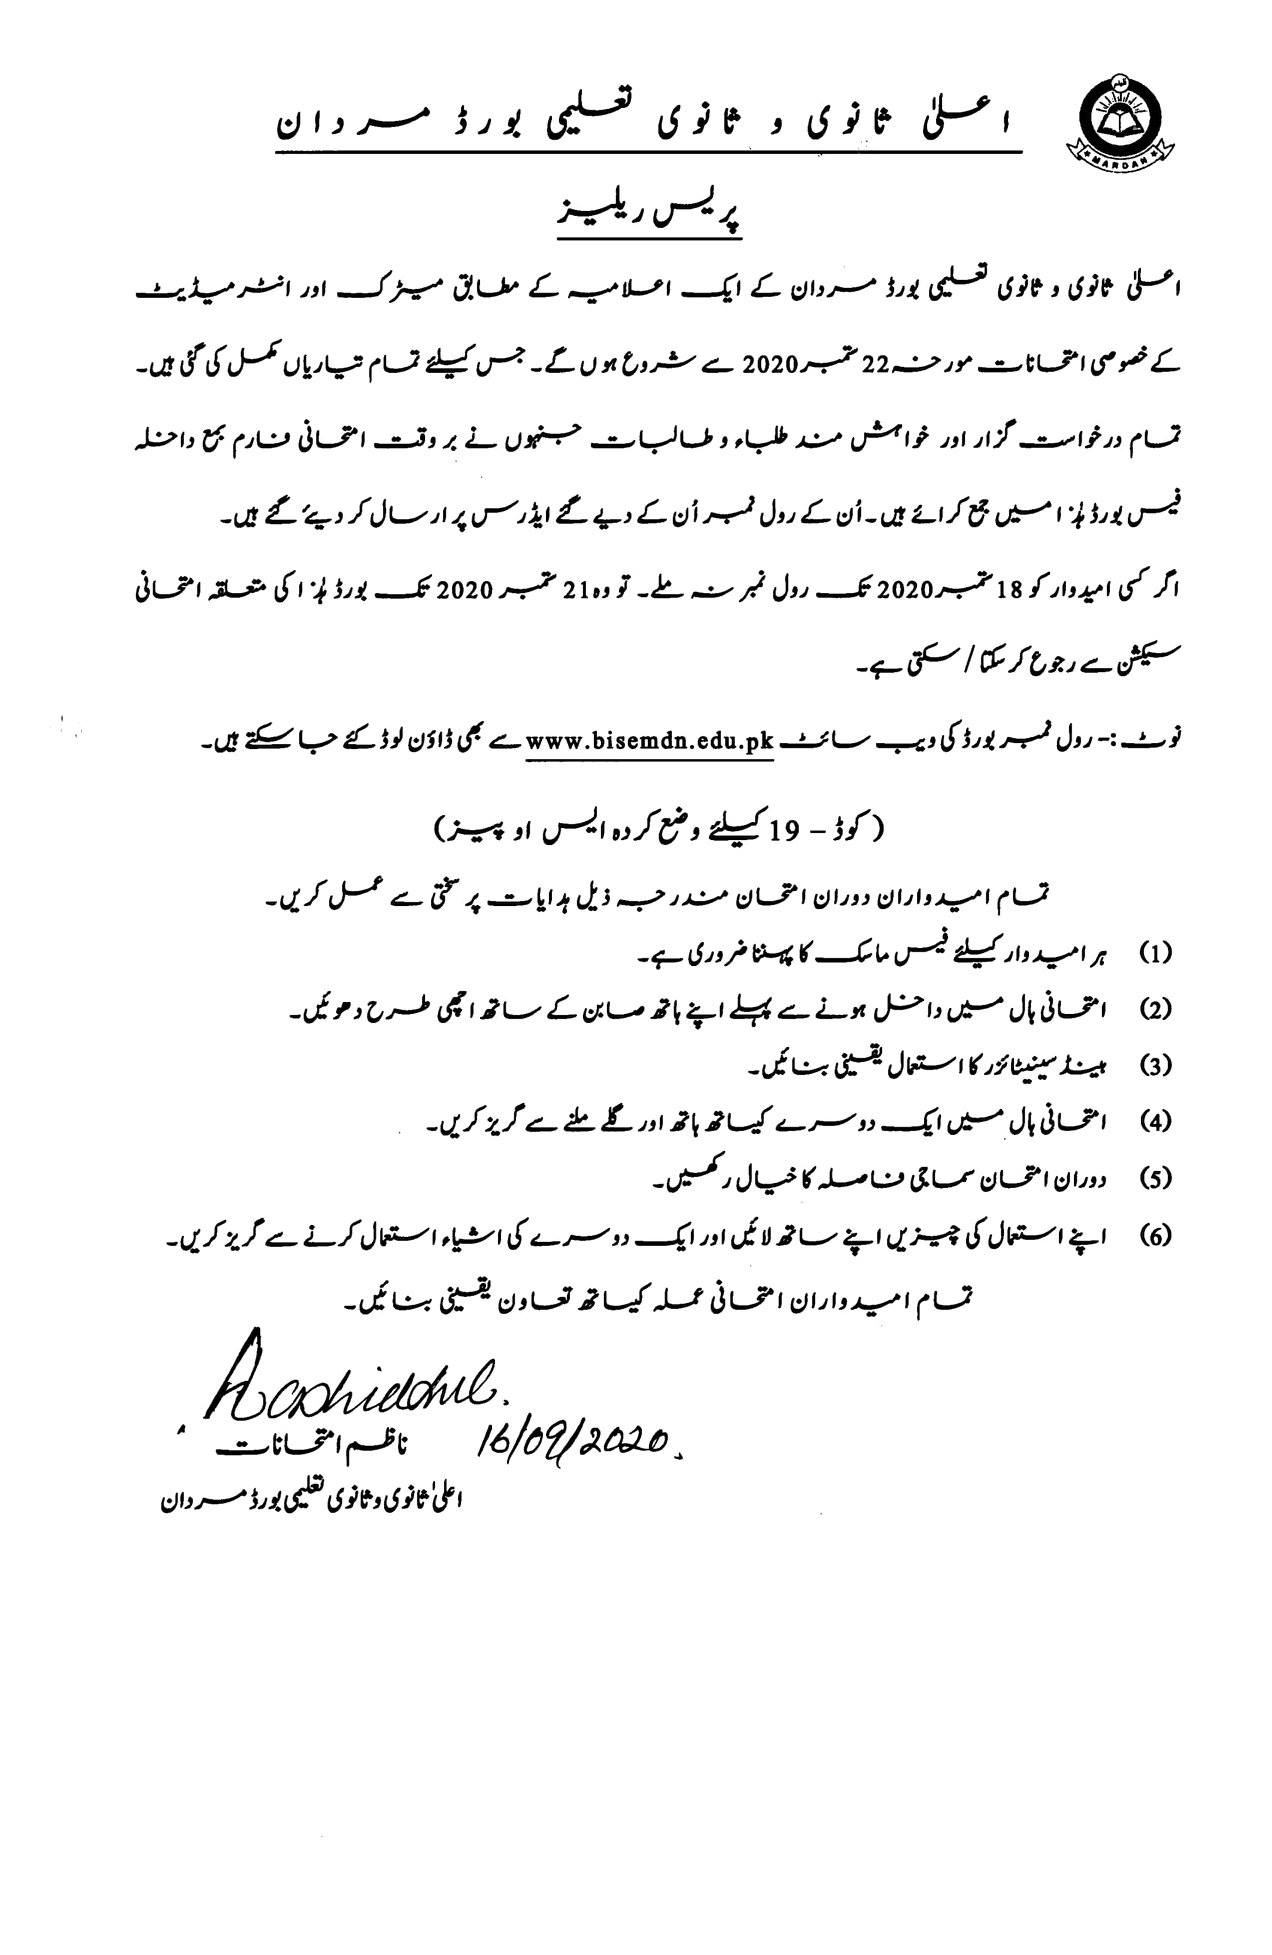 اعلیٰ ثانوی و ثانوی تعلیمی بورڈ مردان
MARDAN
پریس ریلیز
اعلیٰ ثانوی و ثانوی تعلیمی بورڈ مردان کے ایک اعلامیہ کے مطابق میٹرک اور انٹرمیڈیٹ
کے خصوصی امتحانات مورخہ 22 ستمبر 2020 سے شروع ہوں گے۔ جس کیلئے تمام تیاریاں مکمل کی گئی ہیں۔
تمام درخواست گزار اور خواہش مند طلباء و طالبات جنہوں نے بر وقت امتحانی فارم بمع داخلہ
فیس بورڈ ہٰذا میں جمع کرائے ہیں۔ اُن کے رول نمبر اُن کے دیے گئے ایڈرس پر ارسال کر دیئے گئے ہیں۔
اگر کسی امیدوار کو 18 ستمبر 2020 تک رول نمبر نہ ملے۔ تو وہ 21 ستمبر 2020 تک بورڈ ہٰذا کی متعلقہ امتحانی
سیکشن سے رجوع کر سکتا / سکتی ہے۔
نوٹ :- رول نمبر بورڈ کی ویب سائٹ www.bisemdn.edu.pk سے بھی ڈاؤن لوڈ کئے جا سکتے ہیں۔
(کوڈ – 19 کیلئے وضع کردہ ایس او پیز)
تمام امیدواران دوران امتحان مندرجہ ذیل ہدایات پر سختی سے عمل کریں۔
(1) ہر امیدوار کیلئے فیس ماسک کا پہننا ضروری ہے۔
(2) امتحانی ہال میں داخل ہونے سے پہلے اپنے ہاتھ صابن کے ساتھ اچھی طرح دھوئیں۔
(3) ہینڈ سینیٹائزر کا استعمال یقینی بنائیں۔
(4) امتحانی ہال میں ایک دوسرے کیساتھ ہاتھ اور گلے ملنے سے گریز کریں۔
(5) دوران امتحان سماجی فاصلہ کا خیال رکھیں۔
(6) اپنے استعمال کی چیزیں اپنے ساتھ لائیں اور ایک دوسرے کی اشیاء استعمال کرنے سے گریز کریں۔
تمام امیدواران امتحانی عملہ کیساتھ تعاون یقینی بنائیں۔
ناظم امتحانات 16/09/2020
اعلیٰ ثانوی و ثانوی تعلیمی بورڈ مردان